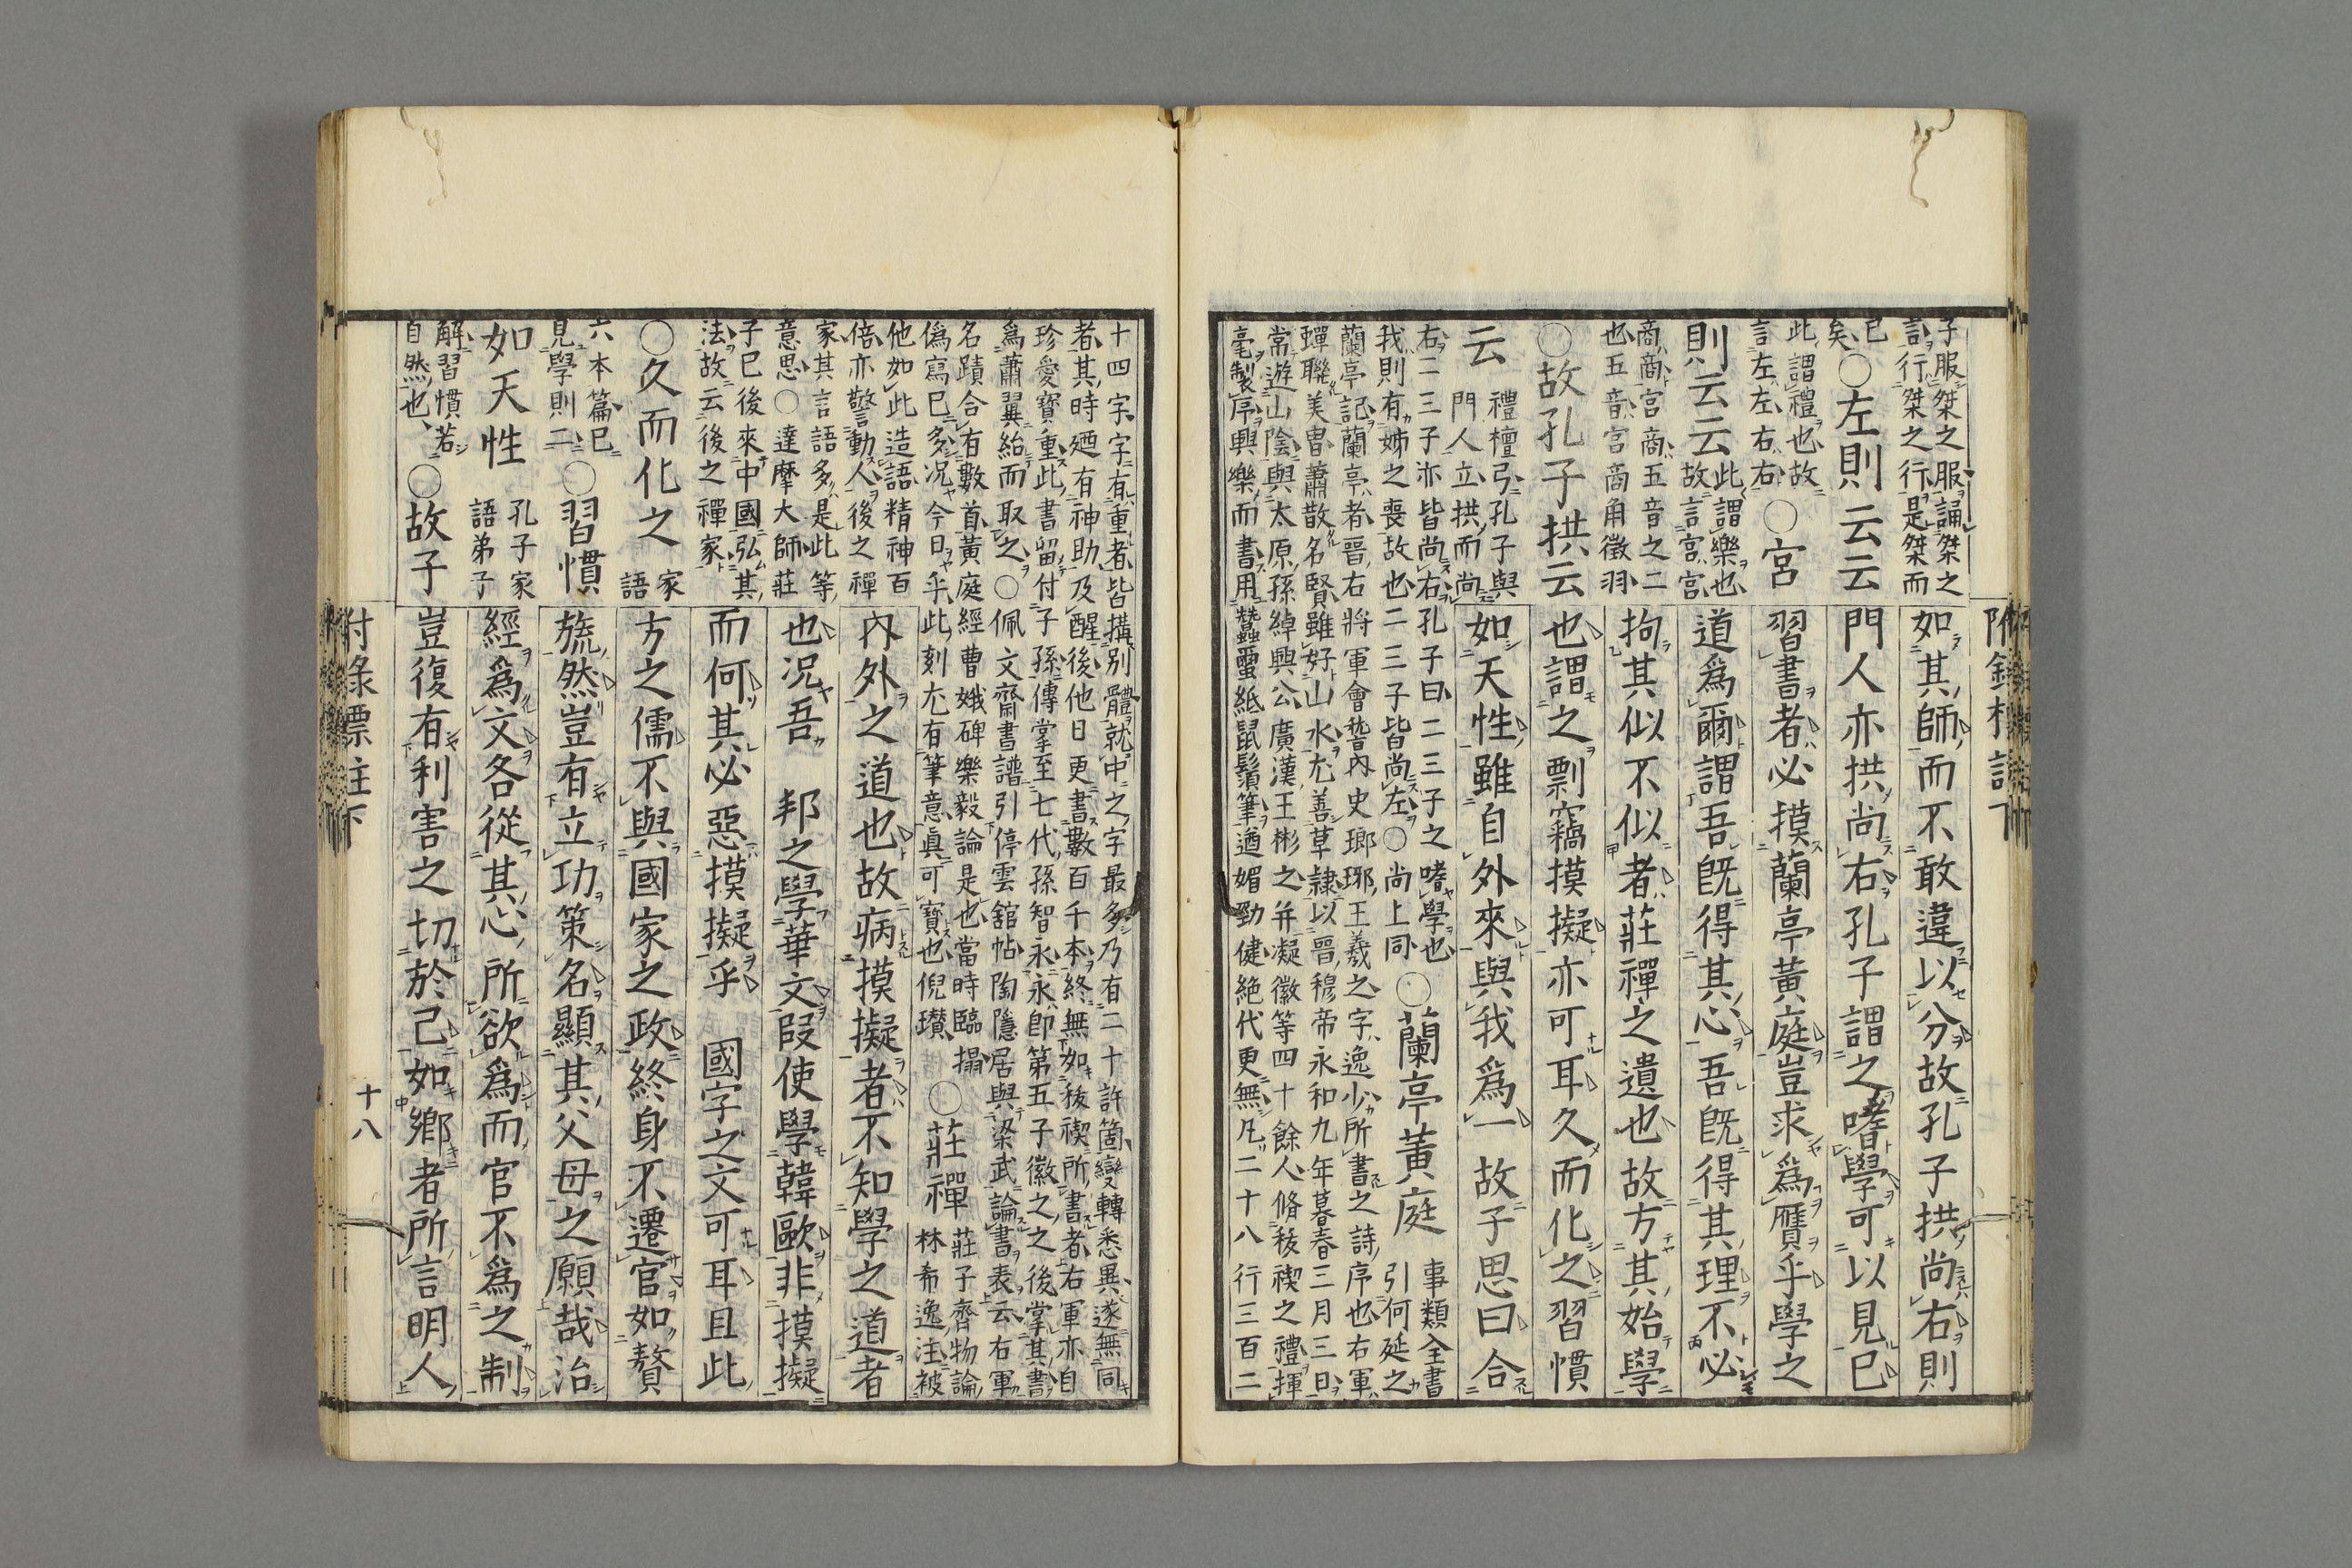 附錄標註下
子服桀之服誦桀之
言行桀之行是桀而
已
矣
○左則云云
此謂禮也故
言左左右右
○宮
則云云
此謂樂也
故言宮宮
商商宮商五音之二
也五音宮商角徵羽
○故孔子拱云
云
禮檀弓孔子與
門人立拱而尚
右二三子亦皆尚右孔子曰二三子之嗜學也
我則有姊之喪故也二三子皆尚左○尚上同
○蘭亭黃庭
事類全書
引何延之
蘭亭記蘭亭者晉右將軍會稽內史瑯琊王羲之字逸少所書之詩序也右軍
蟬聯美冑蕭散名賢雖好山水尤善草隸以晉穆帝永和九年暮春三月三日
常遊山陰與太原孫綽興公廣漢王彬之并凝徽等四十餘人脩祓禊之禮揮
毫製序興樂而書用蠶蠒紙鼠鬚筆遒媚勁健絕代更無凡二十八行三百二
如其師而不敢違以分故孔子拱尚右則
門人亦拱尚右孔子謂之嗜學可以見已
習書者必摸蘭亭黃庭豈求爲贋乎學之
道爲爾謂吾旣得其心吾旣得其理不必
拘其似不似者莊禪之遺也故方其始學
也謂之剽竊摸擬亦可耳久而化之習慣
如天性雖自外來與我爲一故子思曰合
十四字字有重者皆搆別體就中之字最多乃有二十許箇變轉悉異遂無同
者其時廼有神助及醒後他日更書數百千本終無如祓禊所書者右軍亦自
珍愛寶重此書留付子孫傳掌至七代孫智永永即第五子徽之之後掌其書
爲蕭翼紿而取之○佩文齋書譜引停雲舘帖陶隱居與梁武論書表云右軍
名蹟合有數首黃庭經曹娥碑樂毅論是也當時臨搨
僞寫已多况今日乎此刻尤有筆意眞可寶也倪瓚
○莊禪
莊子齊物論
林希逸注被
他如此造語精神百
倍亦警動人後之禪
家其言語多是此等
意思○達摩大師莊
子已後來中國弘其
法故云後之禪家
○久而化之
家
語
六本篇已
見學則二
○習慣
如天性
孔子家
語弟子
解習慣若
自然也
○故子
內外之道也故病摸擬者不知學之道者
也况吾 邦之學華文叚使學韓歐非摸擬
而何其必惡摸擬乎 國字之文可耳且此
方之儒不與國家之政終身不遷官如贅
旒然豈有立功策名顯其父母之願哉治
經爲文各從其心所欲爲而官不爲之制
豈復有利害之切於己如鄉者所言明人
付錄標注下
十八